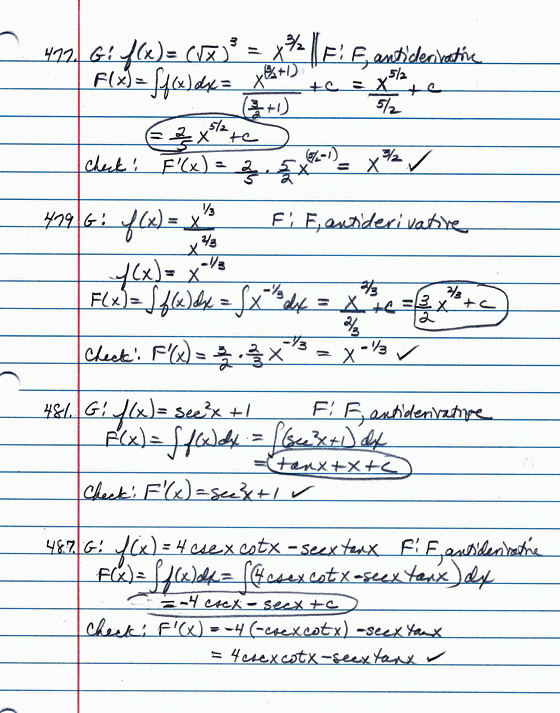 477. G: f(x) = (√x)³ = x^(3/2) || F: F, antiderivative
F(x) = ∫f(x)dx = x^(3/2+1)/(3/2+1) + c = x^(5/2)/(5/2) + c
= 2/5 x^(5/2) + c
Check: F'(x) = 2/5 · 5/2 x^(5/2-1) = x^(3/2) ✓
479 G: f(x) = x^(1/3)/x^(2/3) F: F, antiderivative
f(x) = x^(-1/3)
F(x) = ∫f(x)dx = ∫x^(-1/3)dx = x^(2/3)/(2/3) + c = 3/2 x^(2/3) + c
Check: F'(x) = 3/2 · 2/3 x^(-1/3) = x^(-1/3) ✓
481. G: f(x) = sec²x + 1 F: F, antiderivative
F(x) = ∫f(x)dx = ∫(sec²x+1)dx
= tanx + x + c
Check: F'(x) = sec²x + 1 ✓
487. G: f(x) = 4cscxcotx - secxtanx F: F, antiderivative
F(x) = ∫f(x)dx = ∫(4cscxcotx - secxtanx)dx
= -4cscx - secx + c
Check: F'(x) = -4(-cscxcotx) - secxtanx
= 4cscxcotx - secxtanx ✓